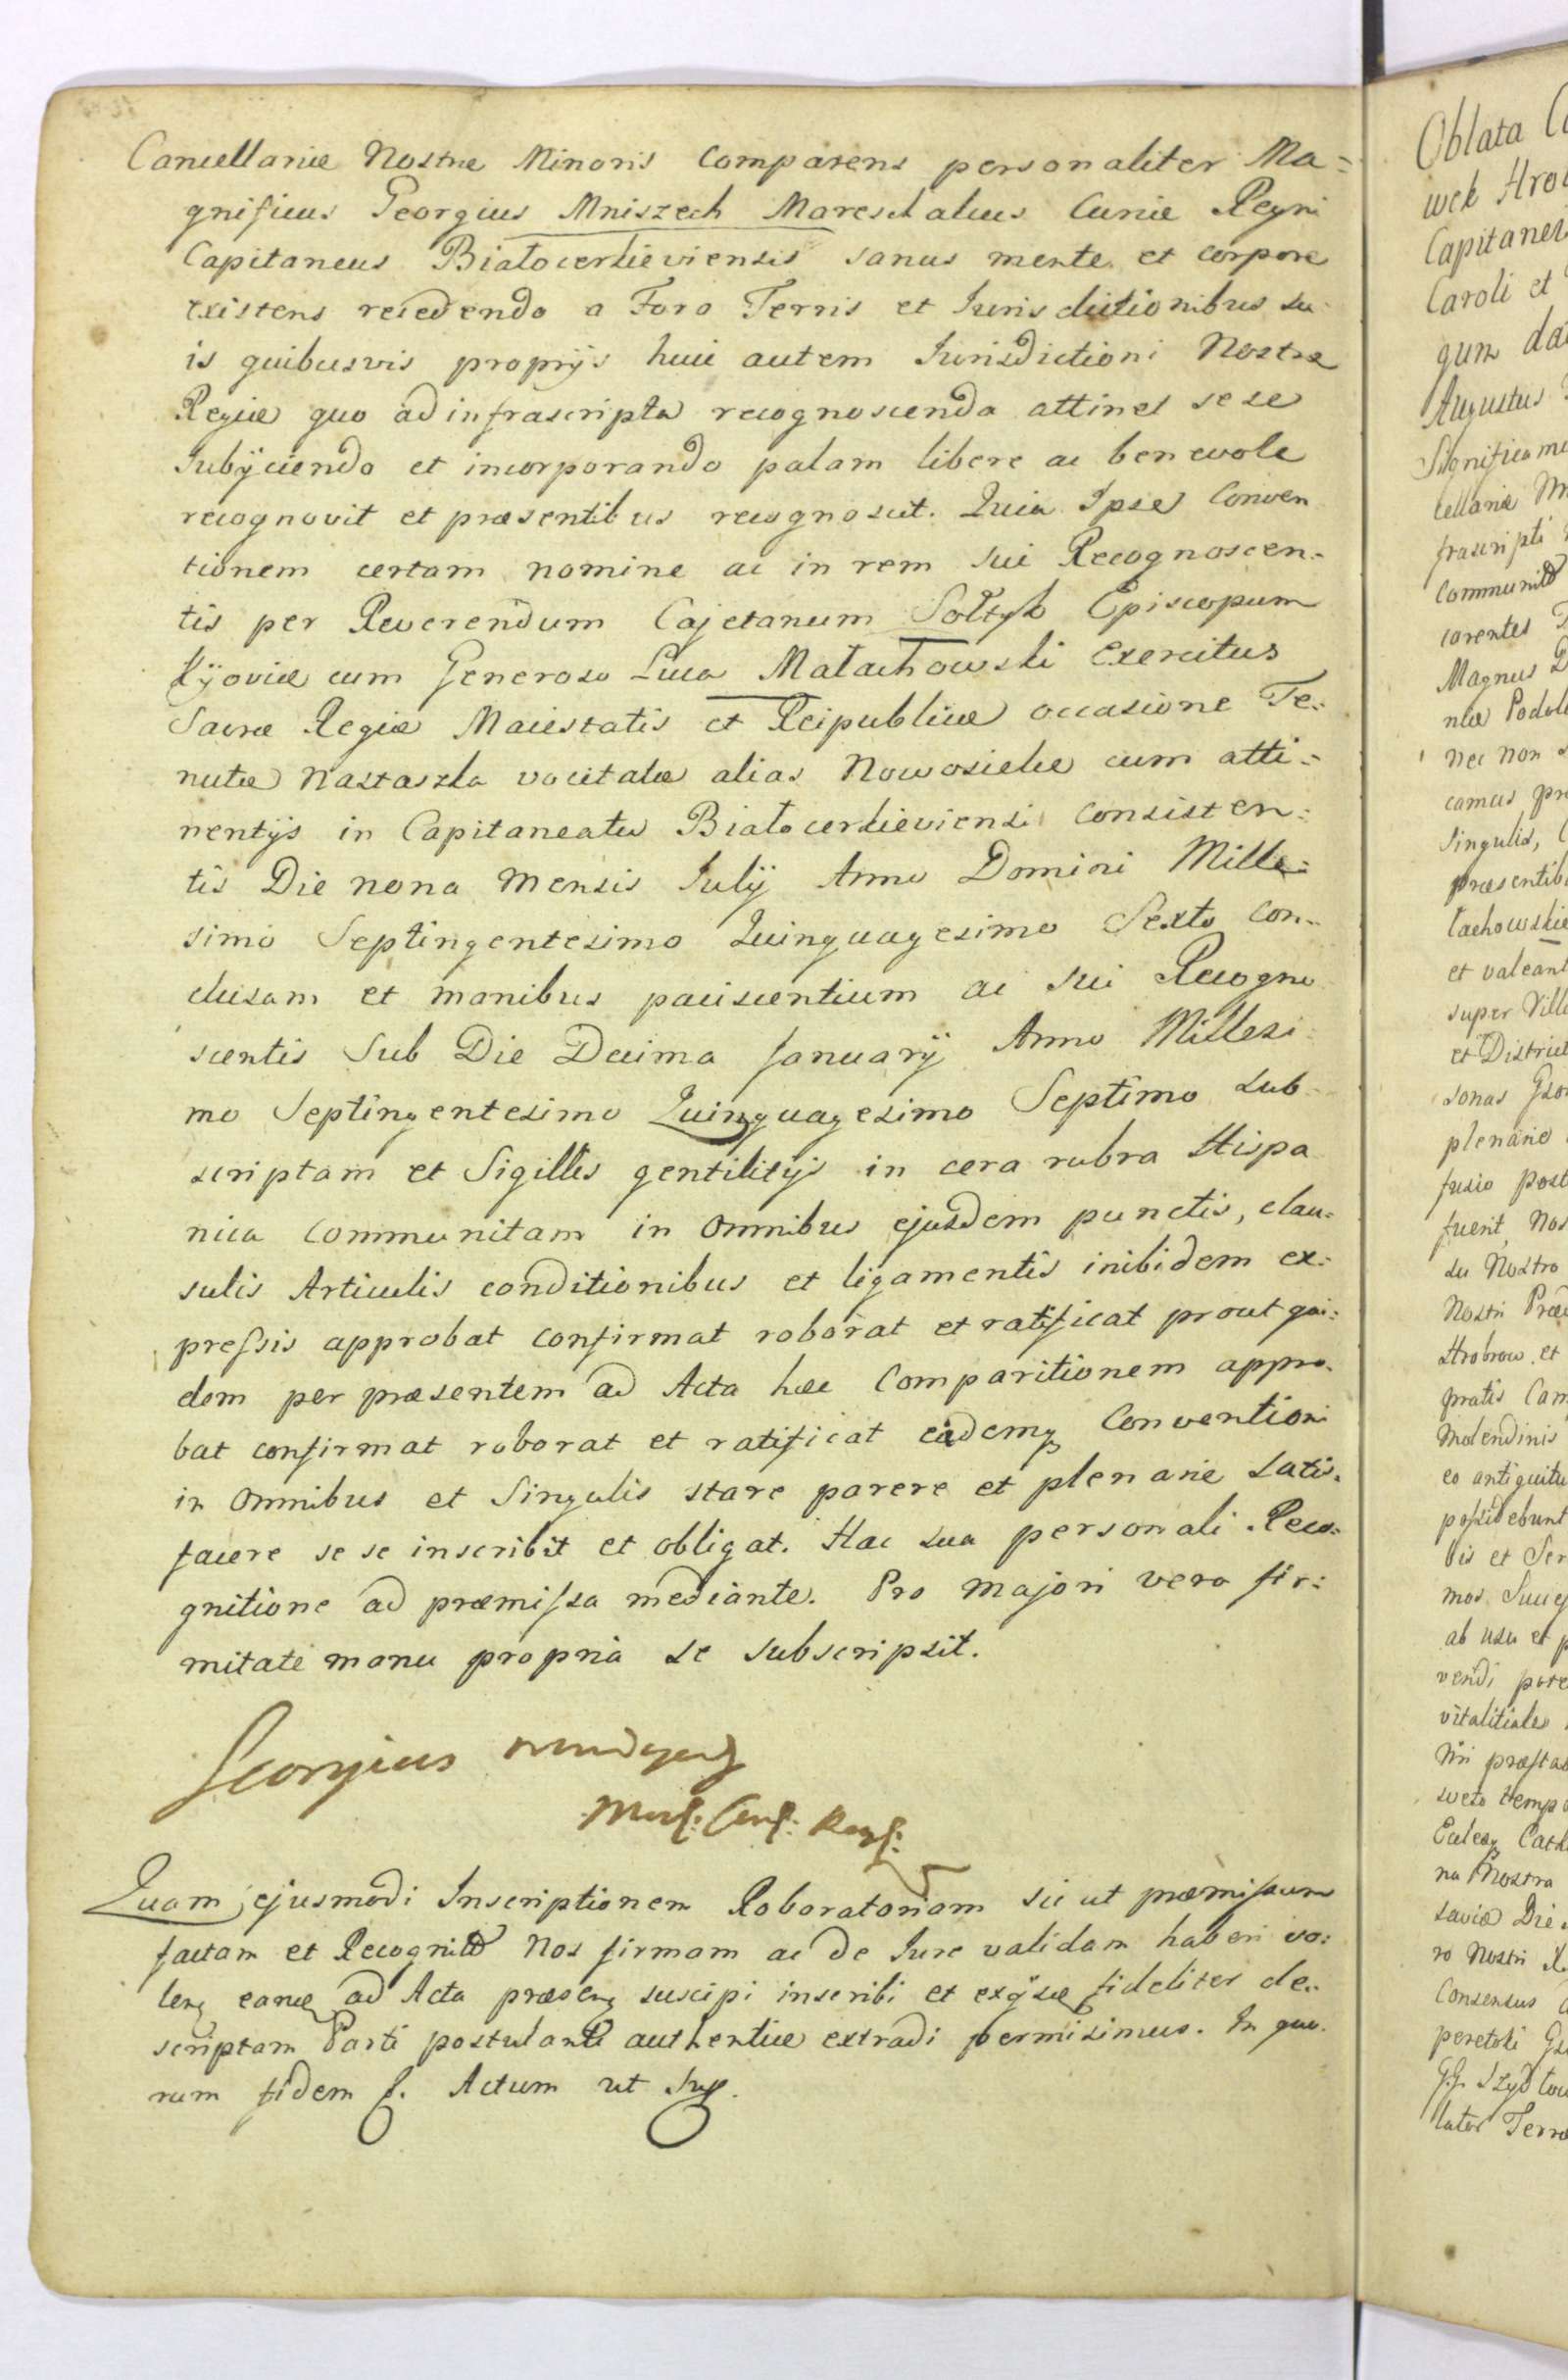 Cancellariæ Nostræ Minoris Comparens personaliter Ma=
gnificus Georgius Mniszech Mareschalcus Curiæ Regni
Capitaneus Białocerkieviensis sanus mente et corpore
existens recedendo a Foro Terris et Jurisdictionibus su-
is quibusvis proprijs huic autem Jurisdictioni Nostræ
Regiæ quo ad infrascripta recognoscenda attinet sese
Subijciendo et incorporando palam libere ac benevole
recognovit et præsentibus recognoscit. Quia Ipse Conven
tionem certam nomine ac in rem sui Recognoscen=
tis per Reverendum Cajetanum Sołtyk Episcopum
Kijoviæ cum Generoso Luca Małachowski Exercitus
Sacræ Regiæ Maiestatis et Reipublicæ occasione Te=
nutæ Nastaszka vocitatæ alias Nowosielce cum atti=
nentijs in Capitaneatu Białocerkieviensi Consisten=
tis Die nona Mensis Julij Anno Domini Mille=
simo Septingentesimo Quinquagesimo Sexto Con=
clusam et manibus paciscentium ac sui Recogno
scentis Sub Die Decima Januarij Anno Millesi
mo Septingentesimo Quinquagesimo Septimo sub
scriptam et Sigillis gentilitijs in cera rubra Hispa
nica Communitam in Omnibus ejusdem punctis, clau=
sulis Articulis conditionibus et ligamentis inibidem ex=
pressis approbat confirmat roborat et ratificat prout qui=
dem per præsentem ad Acta hæc Comparitionem appro=
bat confirmat roborat et ratificat eidemq Conventioni
in Omnibus et Singulis stare parere et plenarie satis=
facere se se inscribit et obligat. Hac sua personali Reco=
gnitione ad præmissa mediante. Pro majori vero fir=
mitate manu propria se subscripsit.
Georgius Mniszech
Mar: Cur: Reg:
Quam ejusmodi Inscriptionem Roboratoriam sic ut præmissum
factam et Recognit Nos firmam ac de Jure validam haberi vo=
len eamq ad Acta præsen suscipi inscribi et exq fideliter de=
scriptam Parti postulanti authentice extradi permisimus. In quo=
rum fidem &. Actum ut Sup.
Oblata
wek
Capitanei
Caroli et
qum
Augustus
Significamus
cellariæ
frascripti
Communit
carentes
Magnus
niæ
nec non
camus
Singulis,
præsentib
et valeant
super Vill
et District
sonas
plenarie
fusio post
fuerit, Nos
su Nostro
Nostri
Hrobrow et
pratis
Molendinis
eo antiquitu
possidebunt
bis et
mos
ab usu et
vendi
vitalitiales
sueto temp
na Nostra
saviæ Die
ro Nostri
Consensus